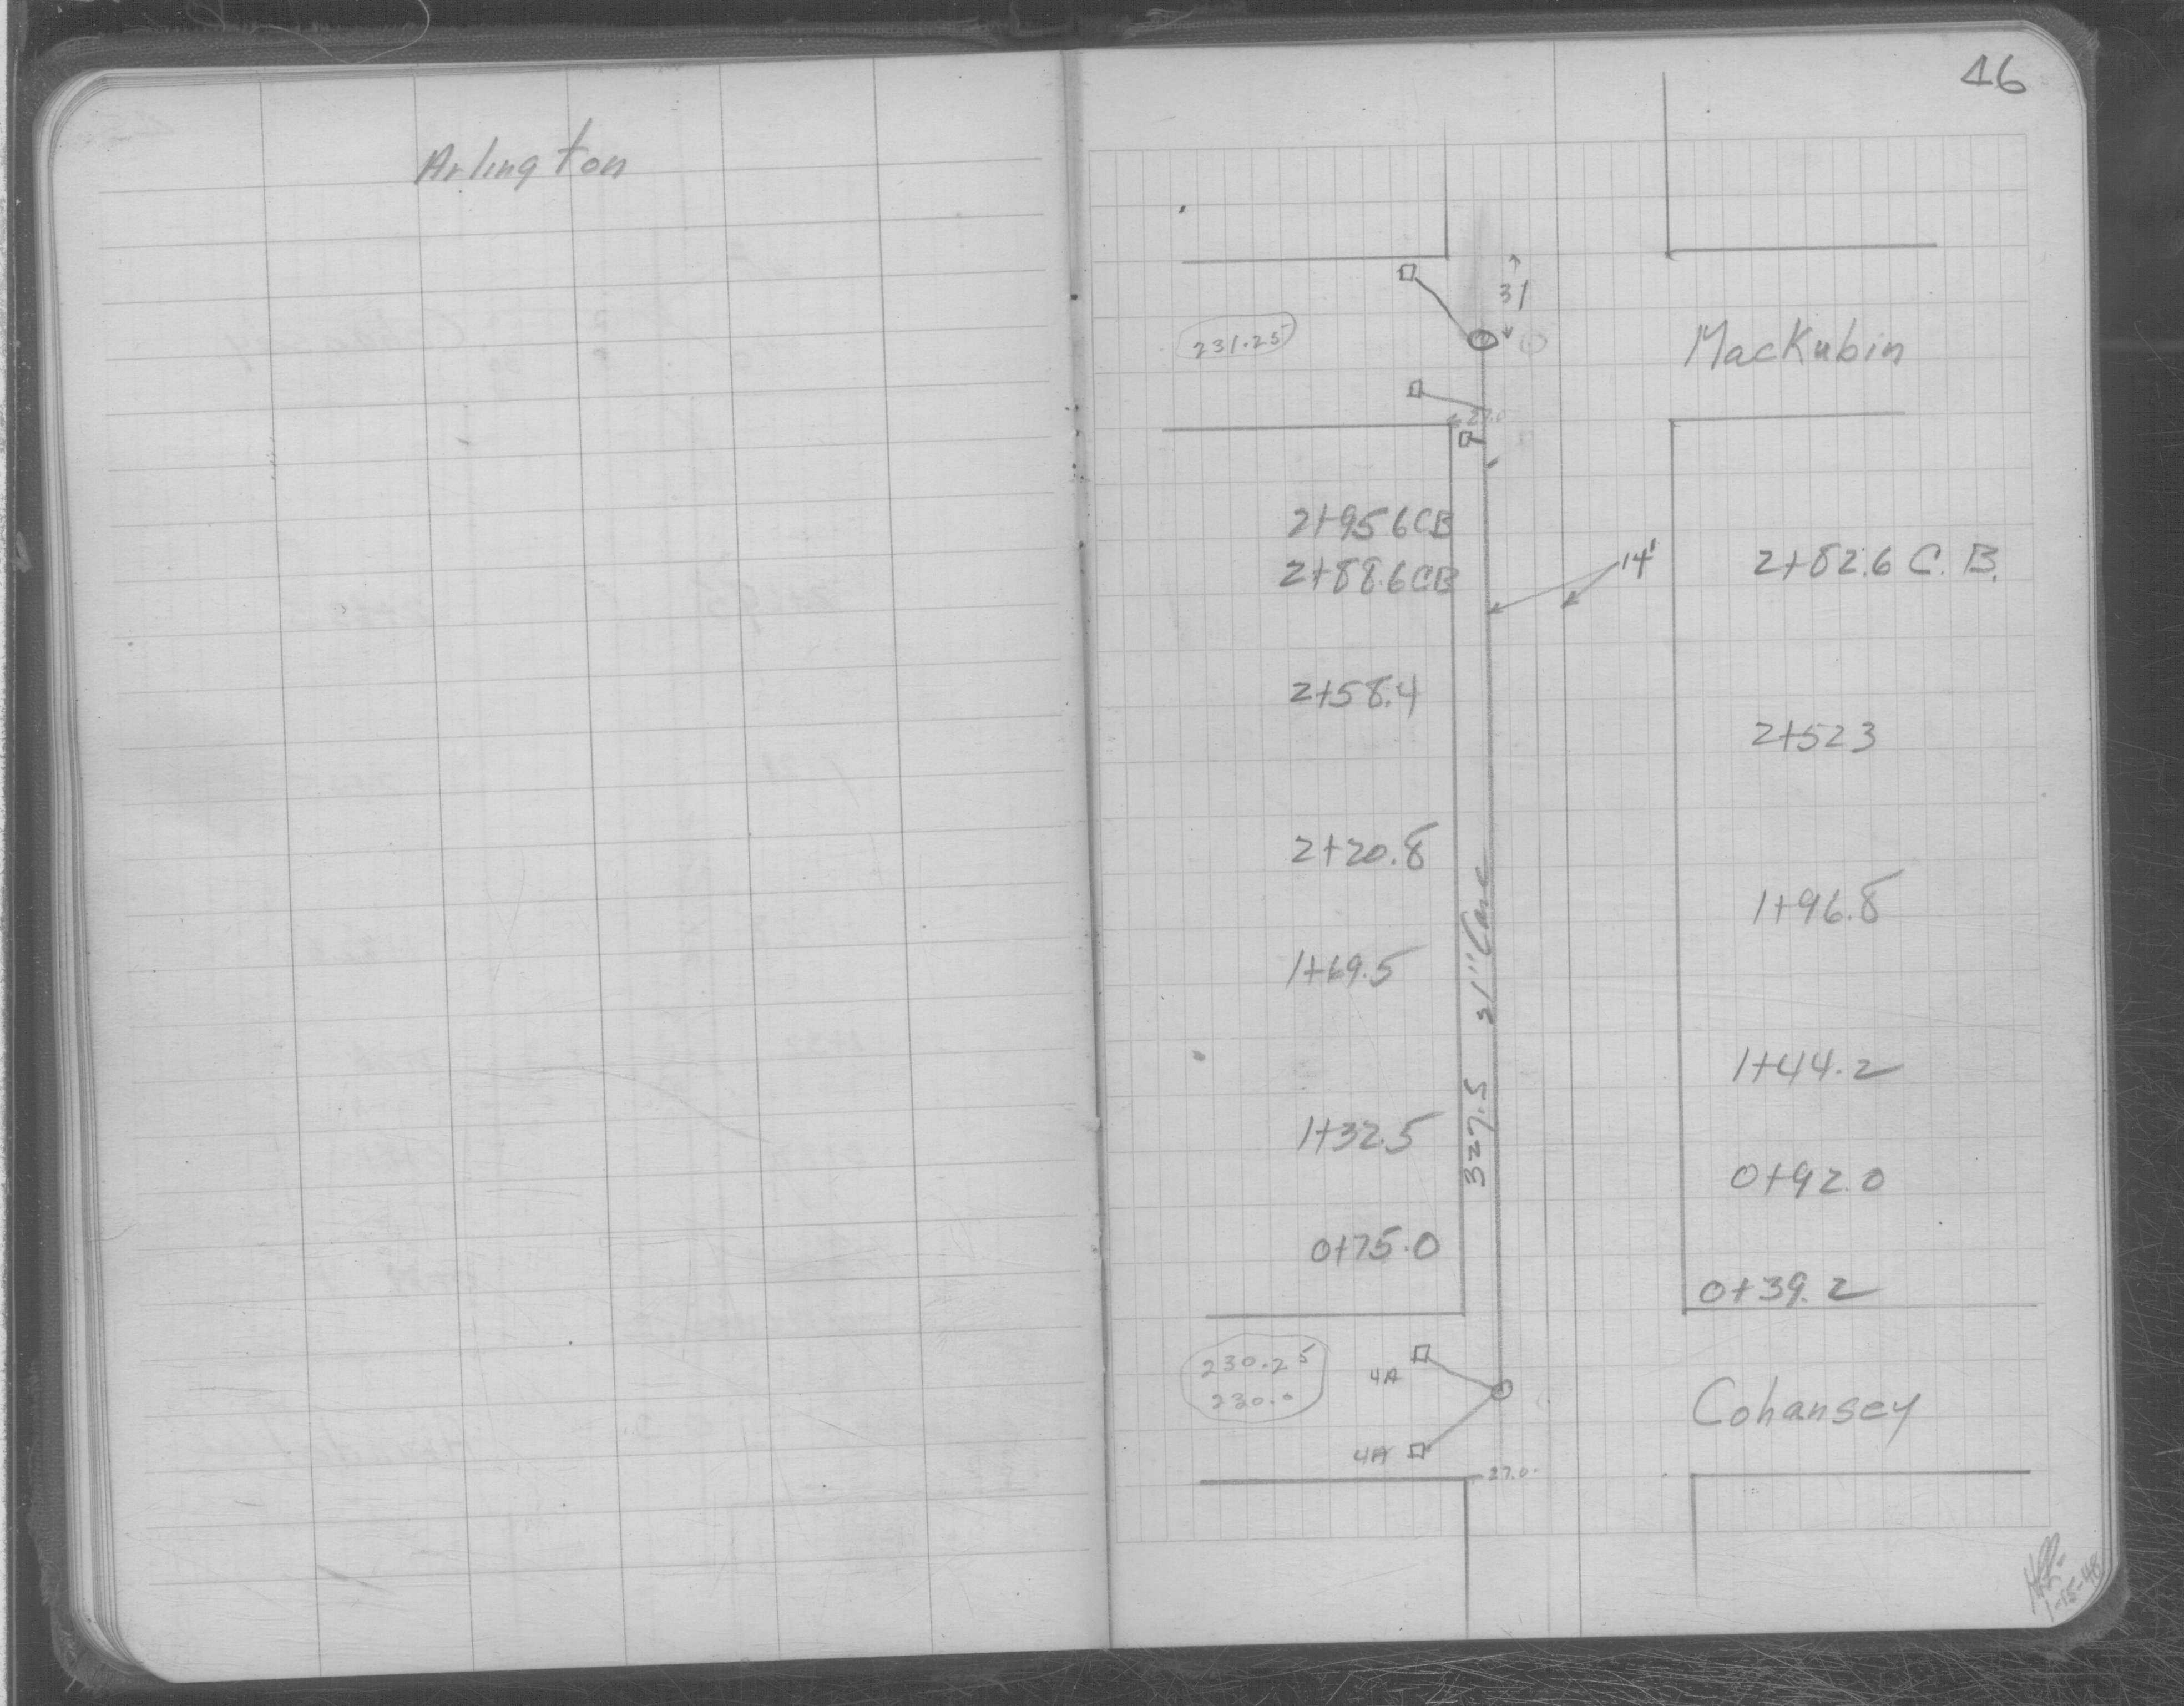 Arlington
46
31
231.25
MacKubin
27.0
2+95 6 CB
2+88.6 CB
14'
2+82.6 C. B.
2+58.4
2+523
2+20.8
1+96.8
1+69.5
327.5 21" Conc
1+44.2
1+32.5
0+92.0
0+75.0
0+39.2
230.25
4A
230.0
Cohansey
4A
27.0
1-15-48